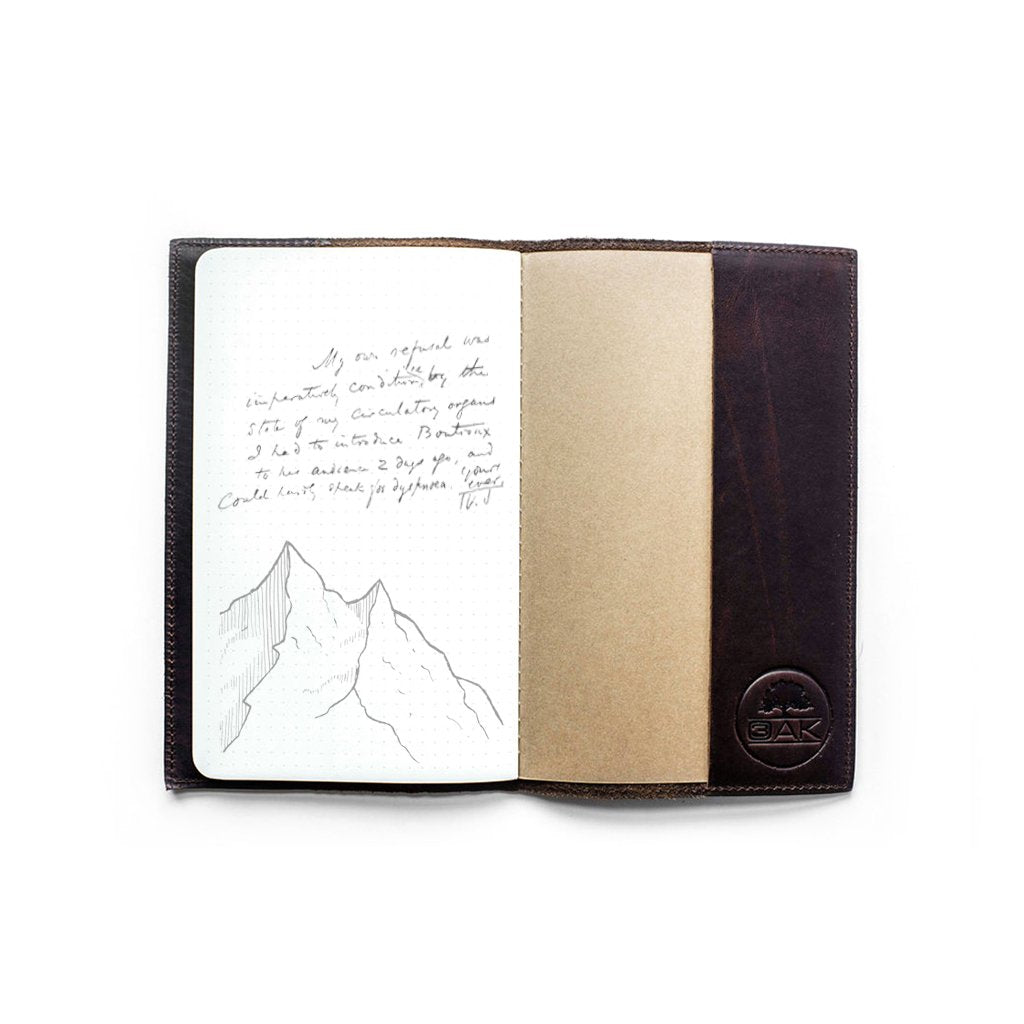 My own refusal was
imperatively conditioned by the
state of my circulatory organs
I had to introduce Boutroux
to his audience 2 days ago, and
Could hardly speak for dyspnoea. Yours
ever
W.J
3AK